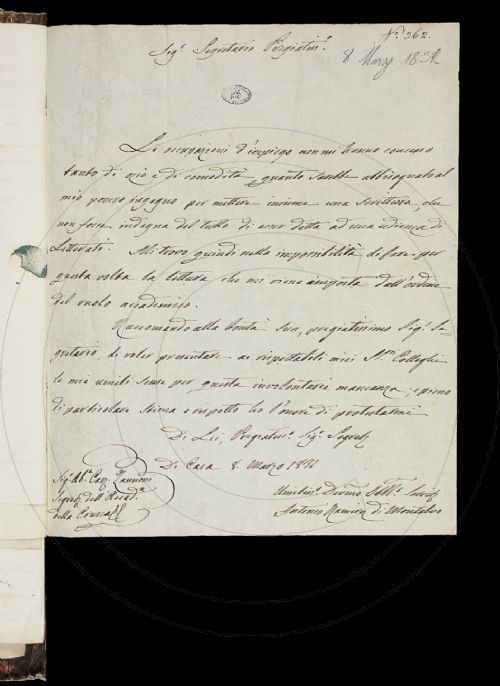 N.º 362.
8 Marzo 183
Sig.r Segretario Pregiatis.o
Le occupazioni d'impiego non mi hanno concesso
tanto di ozio e di comodità quanto sarebb abbisognato al
mio povero ingegno per mettere insieme una Scrittura, che
non fosse indegna del tutto di esser detta ad una udienza di
Letterati. Mi trovo quindi nella impossibilità di fare per
questa volta la lettura che mi viene imposta dall'ordine
del ruolo accademico.
Raccomando alla bontà Sua, pregiatissimo Sig.r Se-
gretario, di voler presentare ai rispettabili miei SS.ri Colleghi
le mie umili scuse per questa involontaria mancanza; e pieno
di particolare stima e rispetto ho l'onore di protestarmi
Di Lei, Pregiatis.o Sig.r Segret.
Di Casa 8. Marzo 183
Sig.r Ab.e Cav. Zannoni
Segret. dell'Accad.a
della Crusca
Umiliss. Devmo Obb.o Servit.
Antonio Ramirez di Montalvo